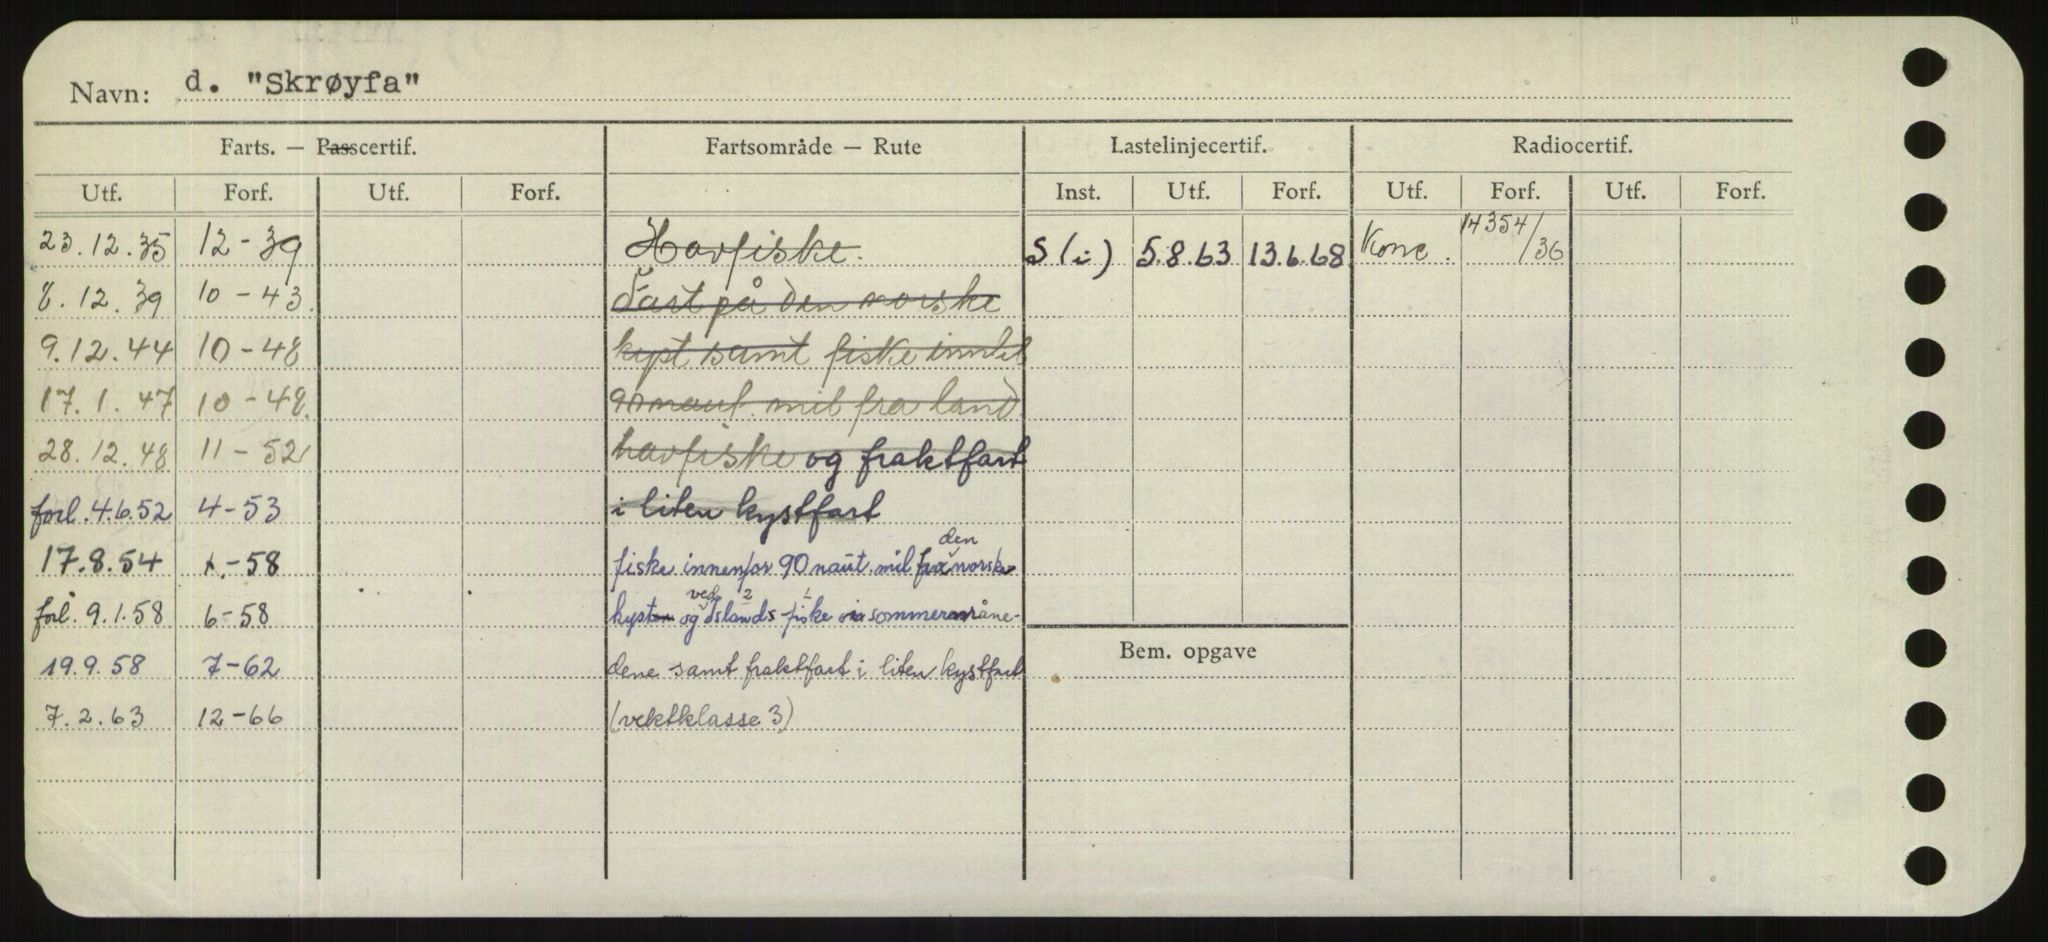 Navn: d. "Skrøyfa"
Farts. — Passcertif. Fartsområde — Rute Lastelinjecertif. Radiocertif.
Utf. Forf. Utf. Forf. Inst. Utf. Forf. Utf. Forf. Utf. Forf.
23.12.35 12-39 Havfiske. S (i) 5.8.63 13.6.68 Konc. 14354/36
8.12.39 10-43. Fast på den norske
9.12.44 10-48 kyst samt fiske inntil
17.1.47 10-48. 90 naut. mil fra land
28.12.48 11-52 havfiske og fraktfart
forl. 4.6.52 4-53 i liten kystfart
17.8.54 -58 fiske innenfor 90 naut. mil fra den norske
forl. 9.1.58 6-58 kyst og ved 2 Islands-fiske 1 sommermåne-
19.9.58 7-62 dene samt fraktfart i liten kystfart
7.2.63 12-66 (vektklasse 3)
Bem. opgave